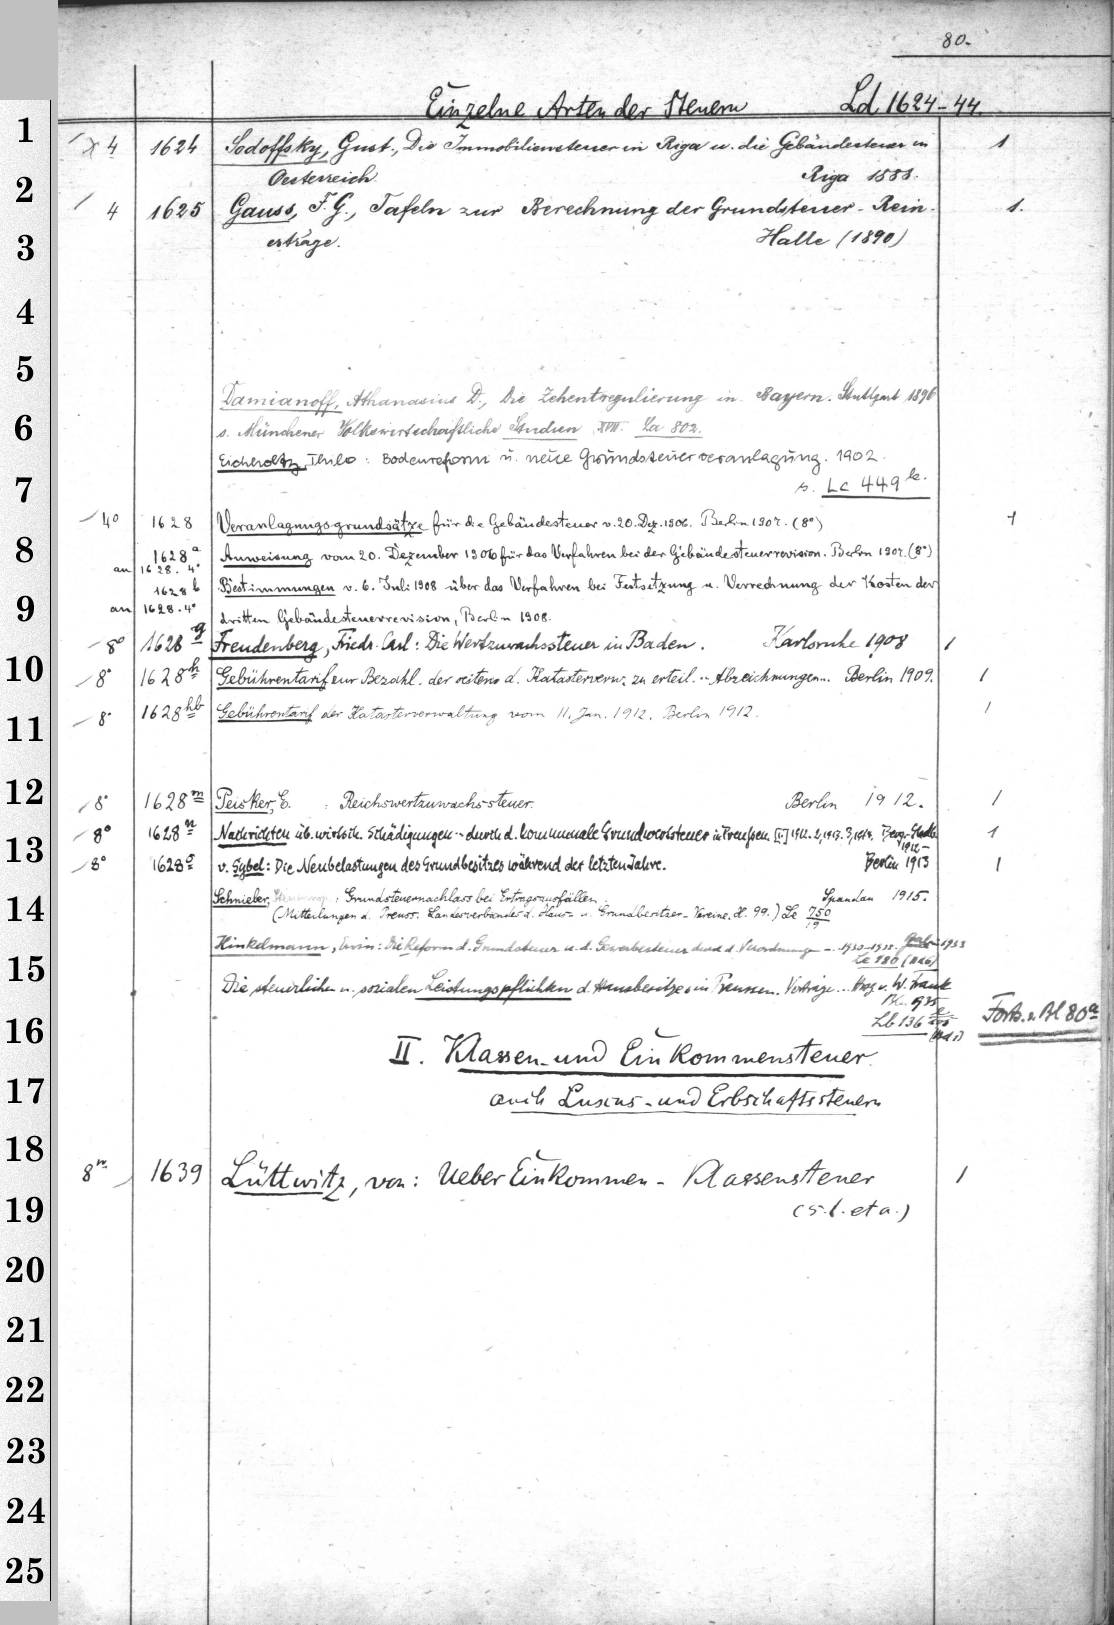 80.
Einzelne Arten der Steuern Ld 1624-44.
4 1624 Sodoffsky, Gust., Die Immobiliensteuer in Riga u. die Gebäudesteuer in 1
Oesterreich. Riga 1888.
4 1625 Gauss, F. G., Tafeln zur Berechnung der Grundsteuer-Rein- 1.
erträge. Halle (1890)
Damianoff, Athanasius D., Die Zehentregulierung in Bayern. Stuttgart 1896
s. Münchener Volkswirtschaftliche Studien XVII. La 802.
Eichholtz, Thilo: Bodenreform u. neue Grundsteuerveranlagung. 1902.
s. Lc 449 k.
4° 1628 Veranlagungsgrundsätze für die Gebäudesteuer v. 20. Dez. 1906. Berlin 1907. (8°) 1
1628 a Anweisung vom 20. Dezember 1906 für das Verfahren bei der Gebäudesteuerrevision. Berlin 1907. (8°)
an 1628. 4°
1628 b Bestimmungen v. 6. Juli 1908 über das Verfahren bei Festsetzung u. Verrechnung der Kosten der
an 1628. 4° dritten Gebäudesteuerrevision, Berlin 1908.
8° 1628 g Freudenberg, Friedr. Carl: Die Wertzuwachssteuer in Baden. Karlsruhe 1908 1
8° 1628 h Gebührentarif zur Bezahl. der seitens d. Katasterverw. zu erteil. .. Abzeichnungen... Berlin 1909. 1
8° 1628 hb Gebührentarif der Katasterverwaltung vom 11. Jan. 1912. Berlin 1912. 1
8° 1628 m Peisker, E. : Reichswertzuwachssteuer. Berlin 1912. 1
8° 1628 n Nachrichten üb. wirtsch. Schädigungen .. durch d. kommunale Grundwertsteuer in Preußen. [1.] 1912. 2, 1913. 3, 1914. 1
1912-
8° 1628 o v. Sybel: Die Neubelastungen des Grundbesitzes während der letzten Jahre. Berlin 1913 1
Schnieber, : Grundsteuernachlass bei Ertragsausfällen. Spandau 1915.
(Mitteilungen d. Preuss. Landesverbandes d. Haus- u. Grundbesitzer-Vereine. H. 99.) Le 750
19
Hinkelmann, Irwin: Die Reform d. Grundsteuer u. d. Gewerbesteuer durch d. Verordnungen ... 1933
Le 980
Die steuerlichen u. sozialen Leistungspflichten d. Hausbesitzes in Preussen. Vorträge... Hrsg v. W. Frank
Bl. 1935
Lb 136 Forts. s. Bl 80a
II. Klassen- und Einkommensteuer.
auch Luxus- und Erbschaftssteuern
8° 1639 Lüttwitz, von: Ueber Einkommen- Klassensteuer 1
(s. l. et a.)
1
2
3
4
5
6
7
8
9
10
11
12
13
14
15
16
17
18
19
20
21
22
23
24
25